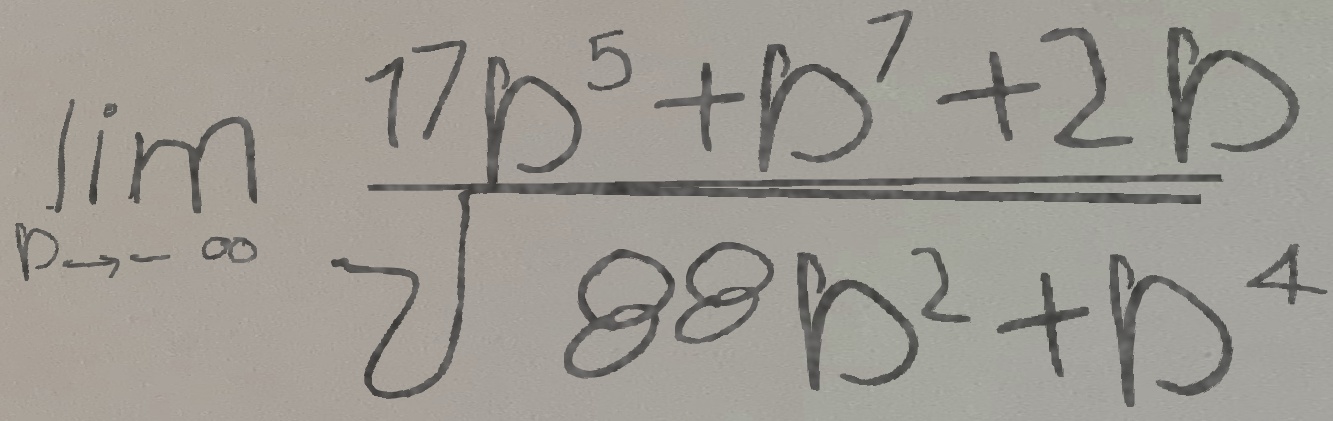 \lim_{p \to -\infty} \frac{17p^5 + p^7 + 2p}{\sqrt{88p^2 + p^4}}